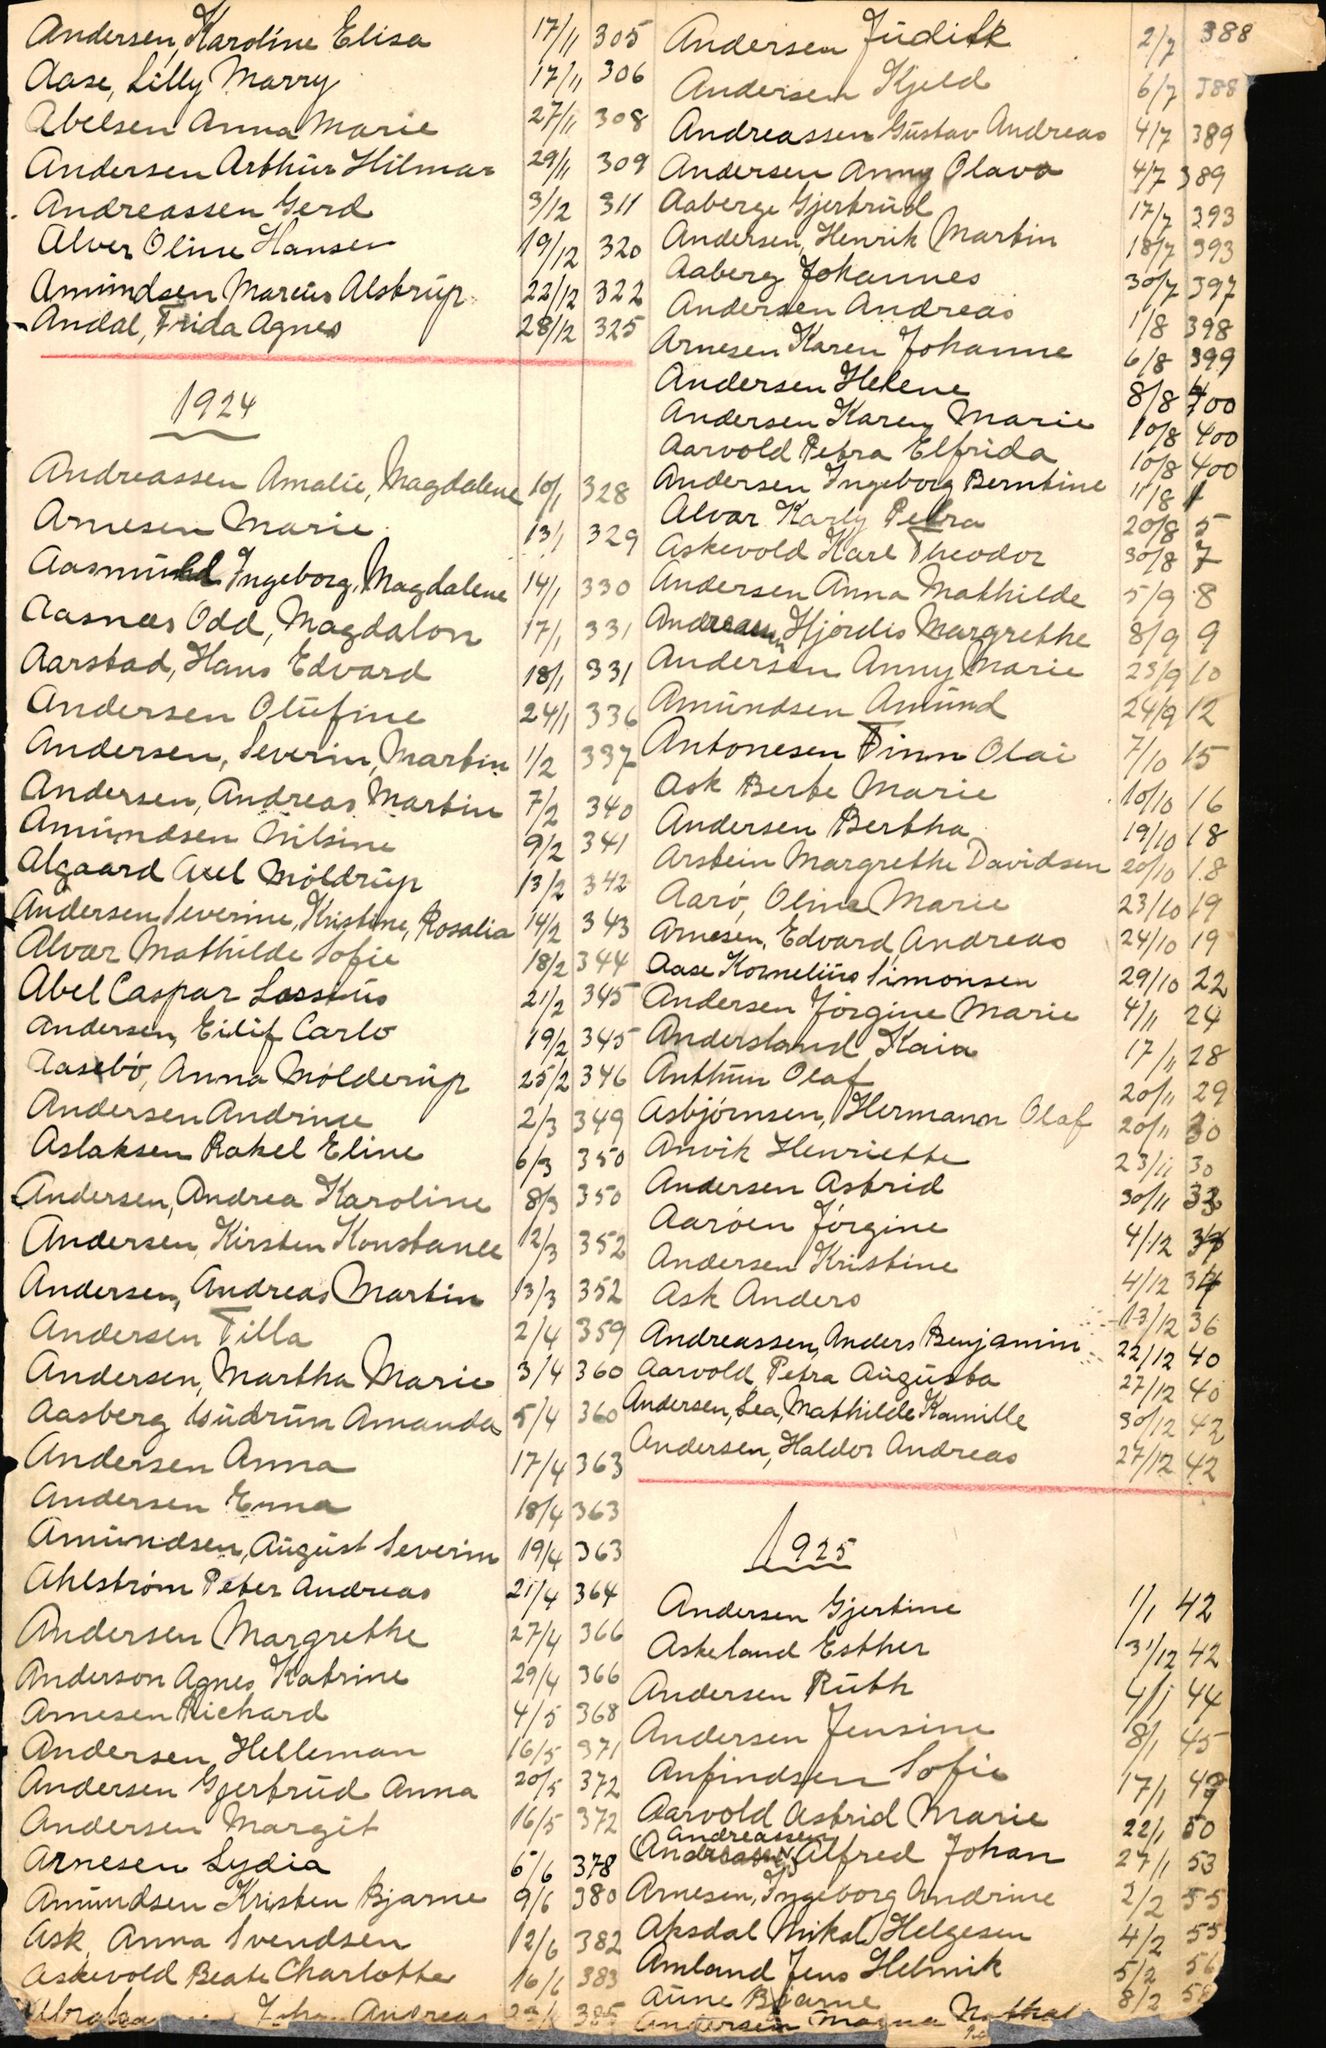 Andersen, Karoline Elisa 17/11 305
Aase, Lilly Marry 17/11 306
Abelsen Anna Marie 27/11 308
Andersen Arthur Hilmar 29/11 309
Andreassen Gerd 3/12 311
Alver Oline Hansen 19/12 320
Amundsen Marcus Alstrup 22/12 322
Andal, Frida Agnes 28/12 325
1924
Andreassen Amalie, Magdalene 10/1 328
Arnesen Marie 13/1 329
Aasmund Ingeborg, Magdalene 14/1 330
Aasnæs Odd, Magdalon 17/1 331
Aarstad, Hans Edvard 18/1 331
Andersen Olufine 24/1 336
Andersen, Severin, Martin 1/2 337
Andersen, Andreas Martin 7/2 340
Amundsen Nilsine 9/2 341
Algaard Axel Möldrup 13/2 342
Andersen Severine, Kristine, Rosalia 14/2 343
Alvær Mathilde Sofie 18/2 344
Abel Caspar Lassius 21/2 345
Andersen, Eilif Carlo 19/2 345
Aasebö, Anna Mölderup 25/2 346
Andersen Andrine 2/3 349
Aslaksen Rakel Eline 6/3 350
Andersen, Andrea Karoline 8/3 350
Andersen, Kirsten Konstanse 12/3 352
Andersen, Andreas Martin 13/3 352
Andersen Tilla 2/4 359
Andersen, Martha Marie 3/4 360
Aasberg Gudrun Amanda 5/4 360
Andersen Anna 17/4 363
Andersen Enna 18/4 363
Amundsen, August Severin 19/4 363
Ahlström Peter Andreas 21/4 364
Andersen Margrethe 27/4 366
Anderson Agnes Katrine 29/4 366
Arnesen Richard 4/5 368
Andersen, Helleman 16/5 371
Andersen Gjertrud Anna 20/5 372
Andersen Margit 16/5 372
Arnesen Lydia 6/6 378
Amundsen Kristen Bjarne 9/6 380
Ask, Anna Svendsen 12/6 382
Askevold Beate Charlotte 16/6 383
Andreas 385
Andersen Judith 2/7 388
Andersen Kjeld 6/7 388
Andreassen Gustav Andreas 4/7 389
Andersen Anny Olava 4/7 389
Aaberge Gjertrud 17/7 393
Andersen, Henrik Martin 18/7 393
Aaberg Johannes 30/7 397
Andersen Andreas 1/8 398
Arnesen Karen Johanne 6/8 399
Andersen Helene 8/8 400
Andersen Karen Marie 10/8 400
Aarvold Petra Elfrida 10/8 400
Andersen Ingeborg Berntine 11/8 1
Alvar Karly Petra 20/8 5
Askevold Karl Theodor 30/8 7
Andersen Anna Mathilde 5/9 8
Andreassen Hjördis Margrethe 8/9 9
Andersen Anny Marie 23/9 10
Amundsen Amund 24/9 12
Antonesen Finn Olai 7/10 15
Ask Berte Marie 10/10 16
Andersen Bertha 19/10 18
Arstein Margrethe Davidsen 20/10 18
Aarö, Oline Marie 23/10 19
Arnesen, Edvard Andreas 24/10 19
Aase Kornelius Simonsen 29/10 22
Andersen Jörgine Marie 4/11 24
Andersland Kaia 17/11 28
Anthun Olaf 20/11 29
Asbjörnsen, Hermann Olaf 20/11 30
Anvik Henriette 23/11 30
Andersen Astrid 30/11 33
Aaröen Jörgine 4/12 34
Andersen Kristine 4/12 34
Ask Anders 13/12 36
Andreassen, Anders Benjamin 22/12 40
Aarvold Petra Augusta 27/12 40
Andersen, Lea, Mathilde Kamille 30/12 42
Andersen, Haldor Andreas 27/12 42
1925
Andersen Gjertine 1/1 42
Askeland Esther 31/12 42
Andersen Ruth 4/1 44
Andersen Jensine 8/1 45
Anfindsen Sofie 17/1 49
Aarvold Astrid Marie 22/1 50
Andreassen
Alfred Johan 27/1 53
Arnesen, Ingeborg Andrine 2/2 55
Aksdal Mikal Helgesen 4/2 55
Amland Jens Helmik 5/2 56
Aune Bjarne 8/2
Andersen Magna